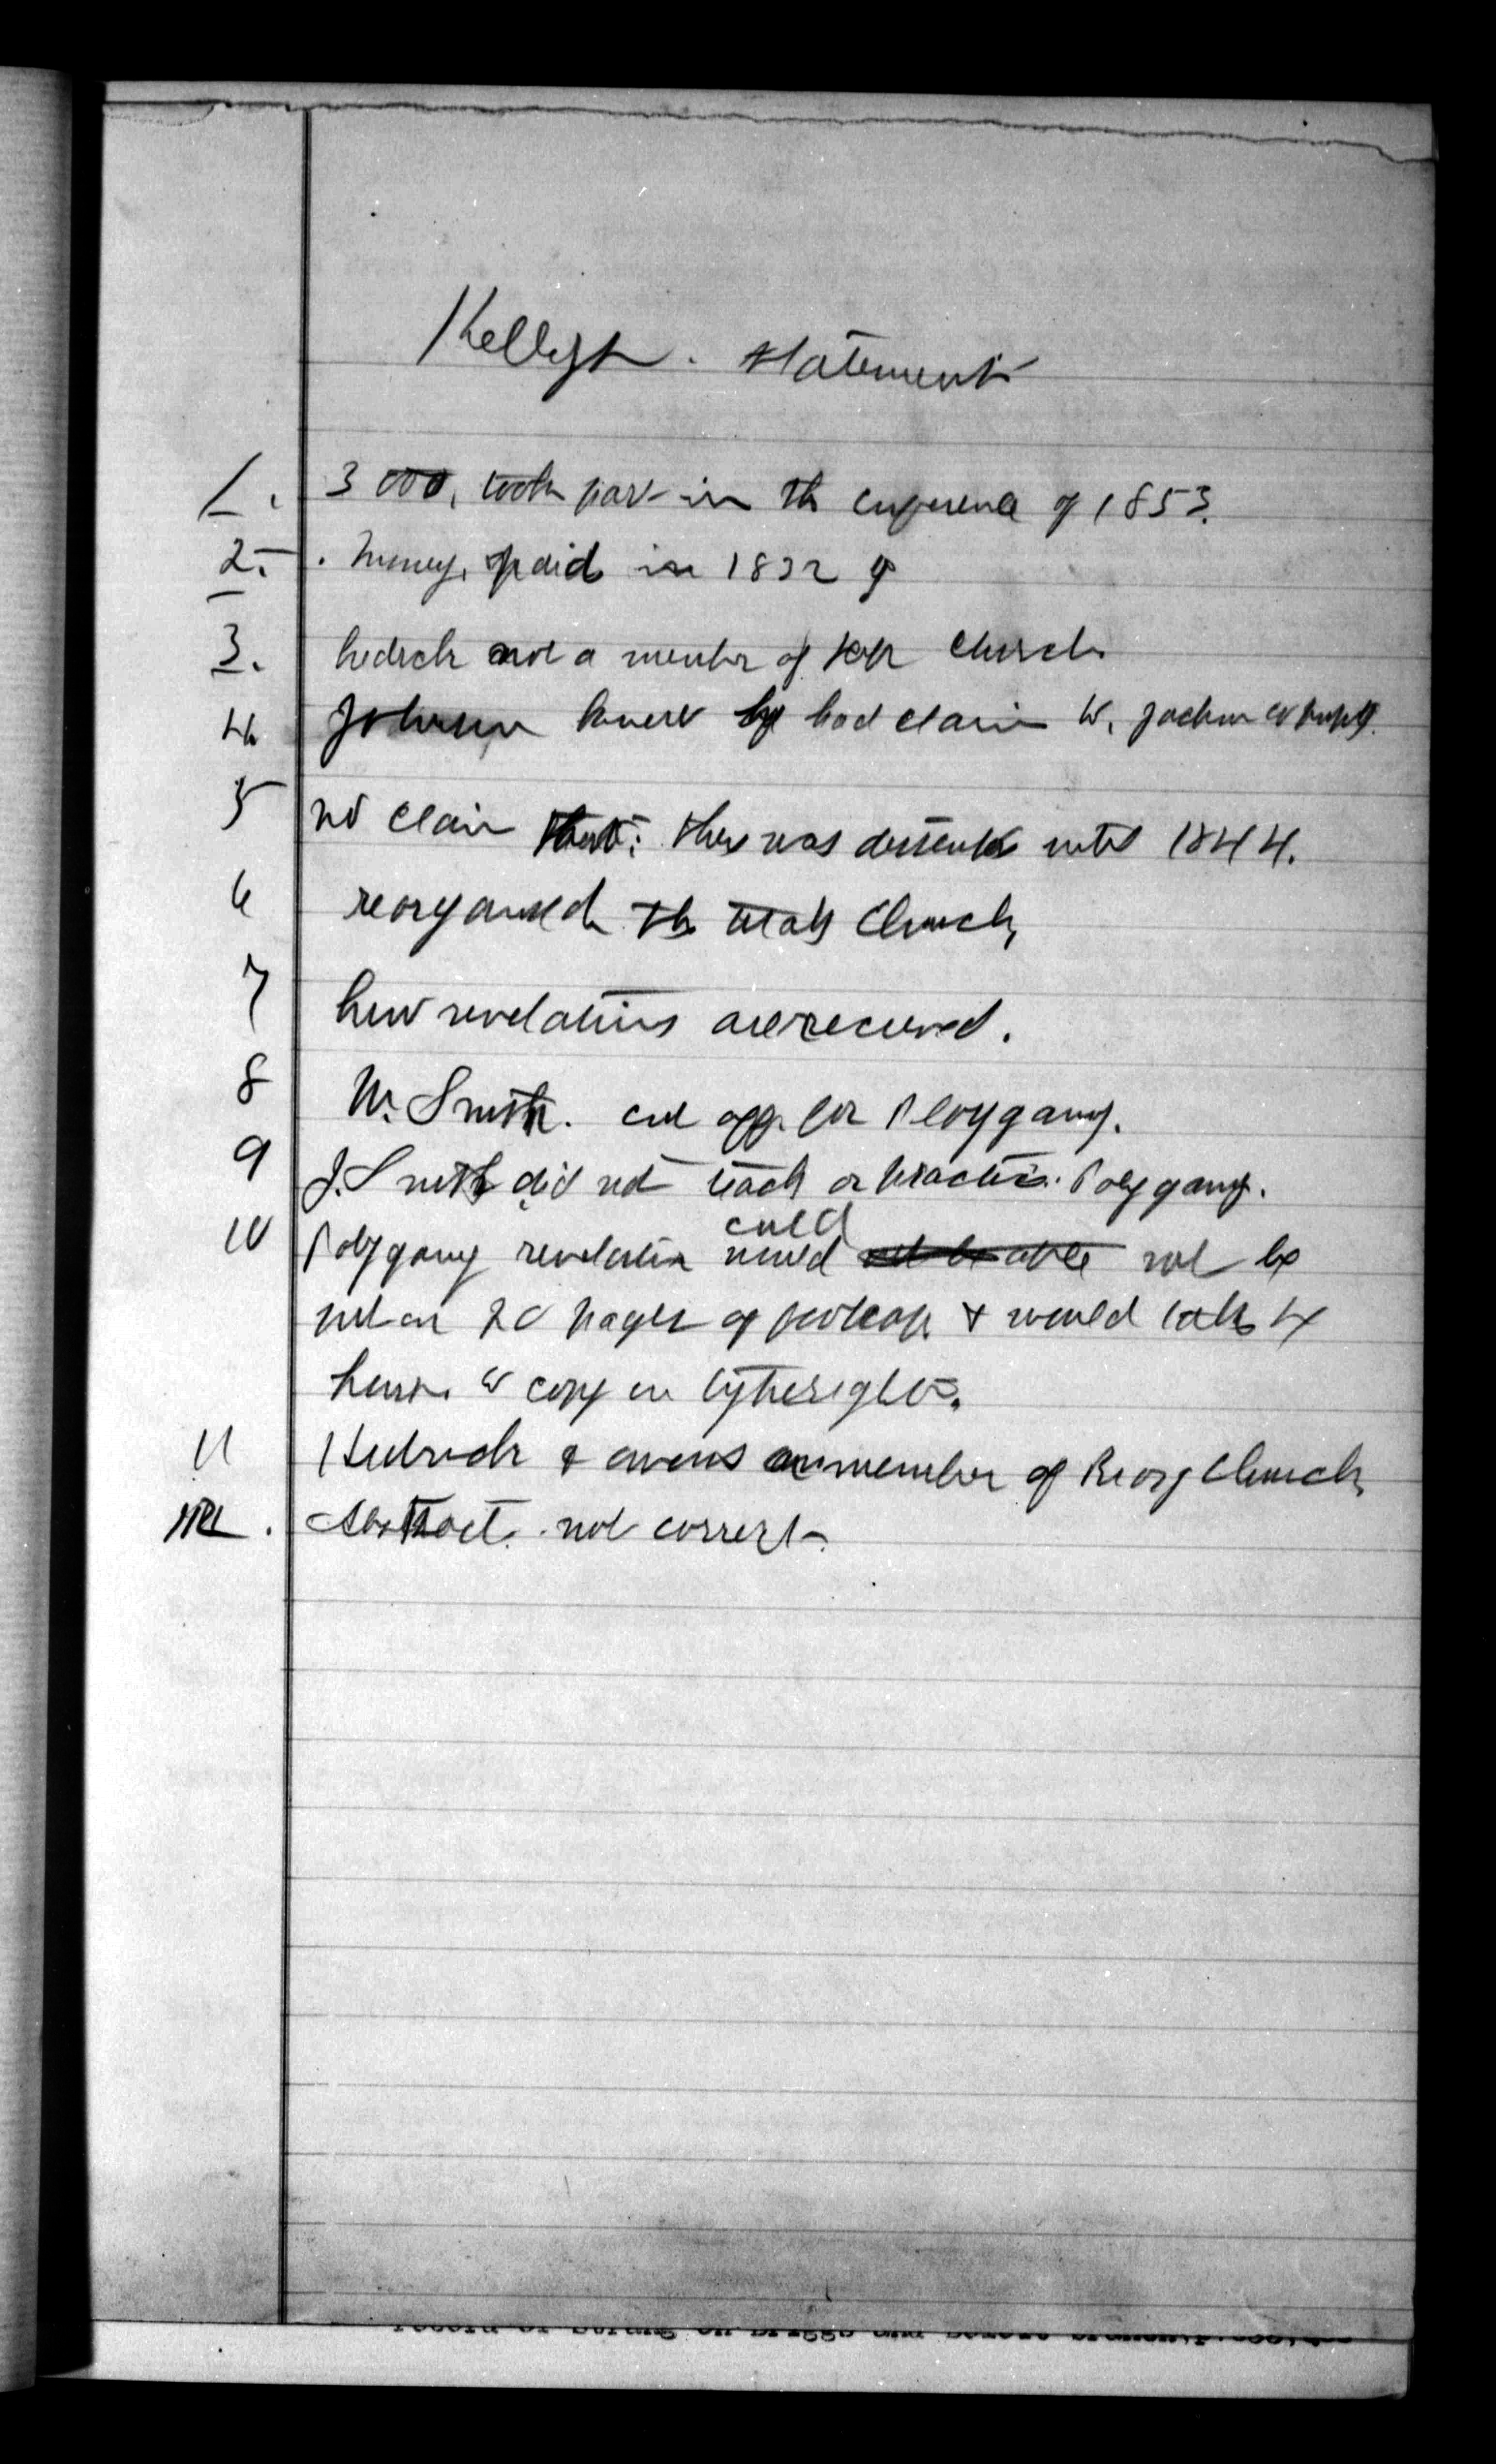 Kellys. statements
1. 3000, took part in th conference of 1853.
2. money, paid in 1832
3. hedrick not a member of Church
4 Johnson had claim W. Jackson
5 no claim that: ther was until 1844.
6 reorganized th Utah Church,
7 new revelations are received.
8 W. Smith. cut off for Ploygamy.
9 J. Smith did not teach or practice. Polygamy.
10 Polygamy revelation could would not be
put on 20 pages of foolscap & would take 4
hours to copy
11 Hedrick & owens member of Reorg Church,
Abstract. not correct.